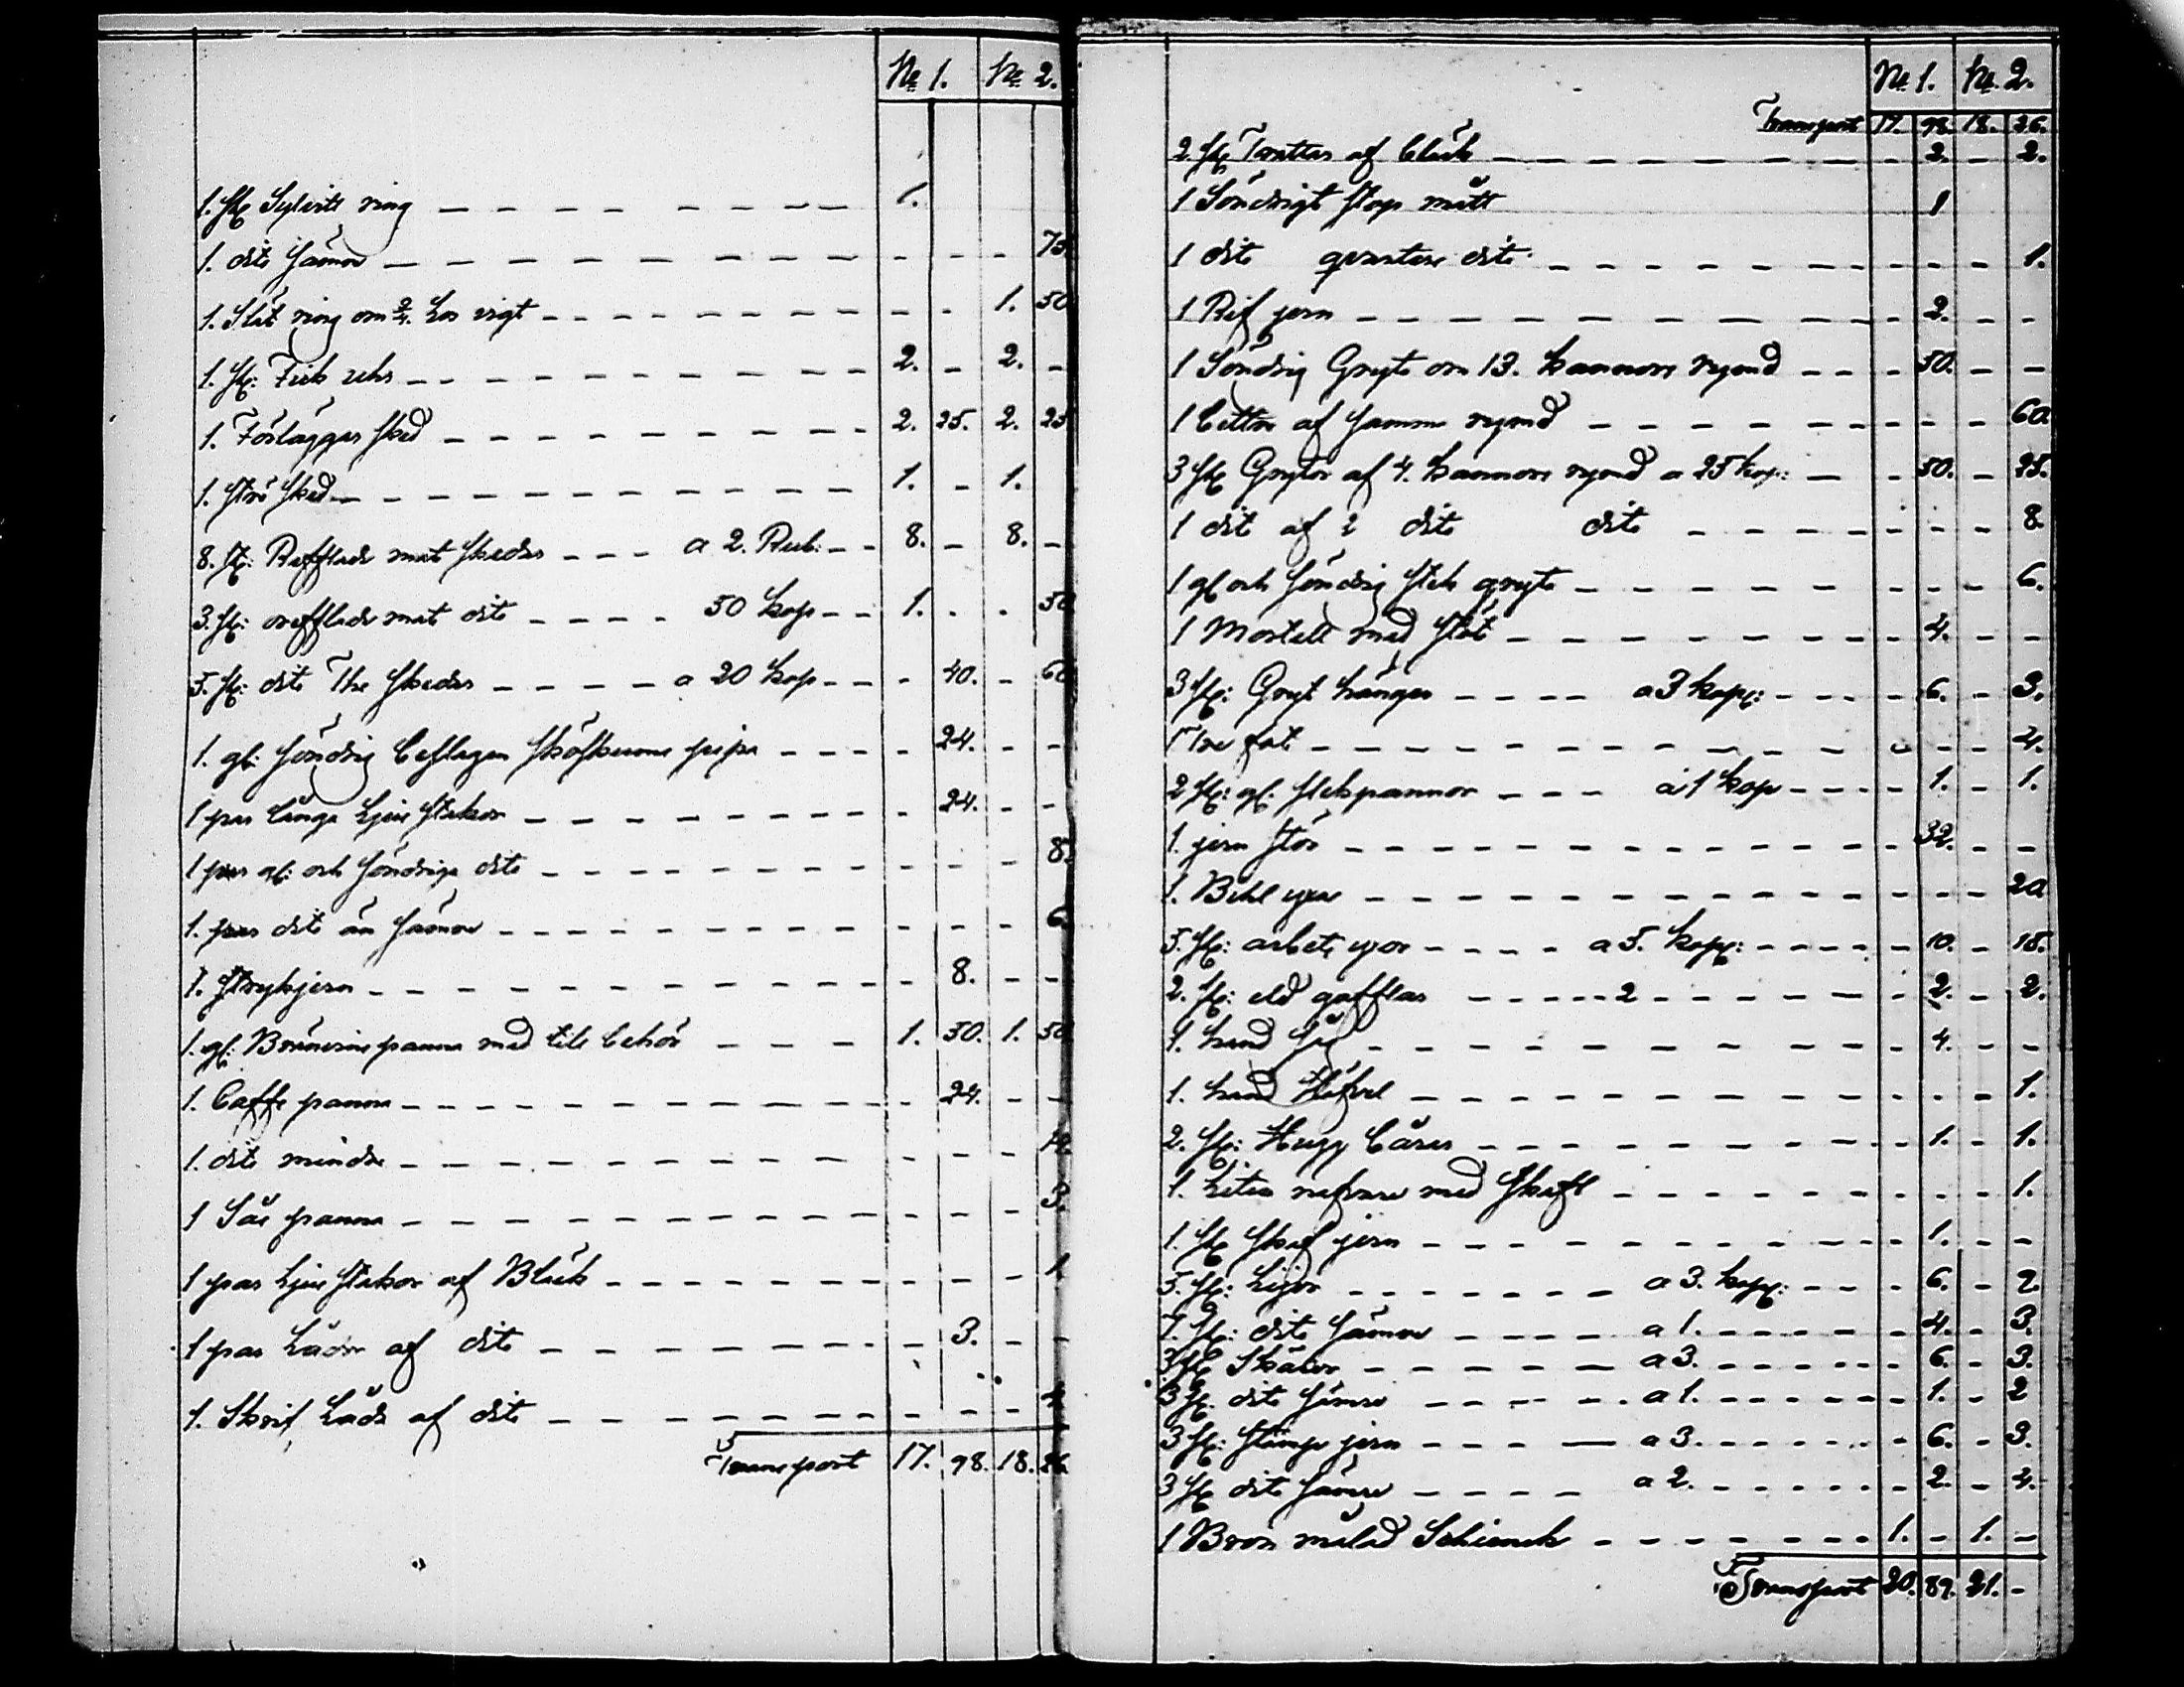 № 1. № 2.
1. st Sylvitt ring - - - 1.
1. dito sämre - - - 75.
1. Slät ring om 2/4. Los vigt - - - 1. 50
1. st: Fick uhr - - - 2. - 2. -
1. Förläggar sked - - - 2. 25. 2. 25
1. strö sked - - - 1. - 1.
8. st: Refflade mat skedar - - - a 2. Rub: - - 8. - 8. -
3. st: orefflade mat dito - - - 50 kop - - 1. - - 50
5. st: dito The skedar - - - a 20 kop - - - 40. - 60
1. gl: söndrig beslagen sköskums pipa - - - 24. - -
1 par långa Ljus stakor - - - 24. - -
1 par gl: och söndriga dito - - - 8.
1. par dito än sämre - - - 6.
1. strykjern - - - 8. - -
1. gl: Bränvins panna med till behör - - - 1. 50. 1. 50
1. Caffe panna - - - 24. - -
1. dito mindre - - - 12.
1 Sås panna - - - 3.
1 par Ljus stakor af Bläck - - - 1
1 par Lådor af dito - - - 3. - -
1. Skrif Låda af dito - - -
Transport 17. 98. 18. 26.
№ 1. № 2.
Transport 17. 98. 18. 26.
2. st Trattar af bläck - - - 2. - 2.
1 Söndrigt stop mått 1
1 dito qvarters dito - - - 1.
1 Rif jern - - - 2. - -
1 Söndrig Gryta om 13. kannors rymd - - - 50. - -
1 bättre af samma rymd - - - 60.
3 st Grytor af 4. kannors rymd a 25 kop: - - 50. - 25.
1 dit af 2 dito dito - - - 8.
1 gl och söndrig stek gryta - - - 6.
1 Mortell med stöt - - - 4. - -
3 st: Gryt hängar - - - a 3 kop: - - - 6. - 3.
1 Tre fot - - - 4.
2 st: gl: stekpannor - - - a 1 kop - - - 1. - 1.
1. jern stör - - - 32. - -
1. Bihl yxa - - - 20
5. st: arbets yxor - - - a 5. kop: - - - 10. - 15.
2. st: eld gafflar - - - 2 - - - 2. - 2.
1. hand såg - - - 4. - -
1. hand Höfvel - - - 1.
2. st: Hugg bårar - - - 1. - 1.
1. Liten nafvare med skaft - - - 1.
1. st skaf jern - - - 1. - -
5. st: Lijor - - - a 3. kop: - - - 6. - 2.
7. st: dito sämre - - - a 1. - - - 4. - 3.
3 st Skäror - - - a 3. - - - 6. - 3.
3 st. dito sämre - - - a 1. - - - 1. - 2
3 st: stämp jern - - - a 3. - - - 6. - 3.
3 st dito sämre - - - a 2. - - - 2. - 4.
1 Brun målad Schienck - - - 1. - 1. -
Transport 20. 89. 21. -